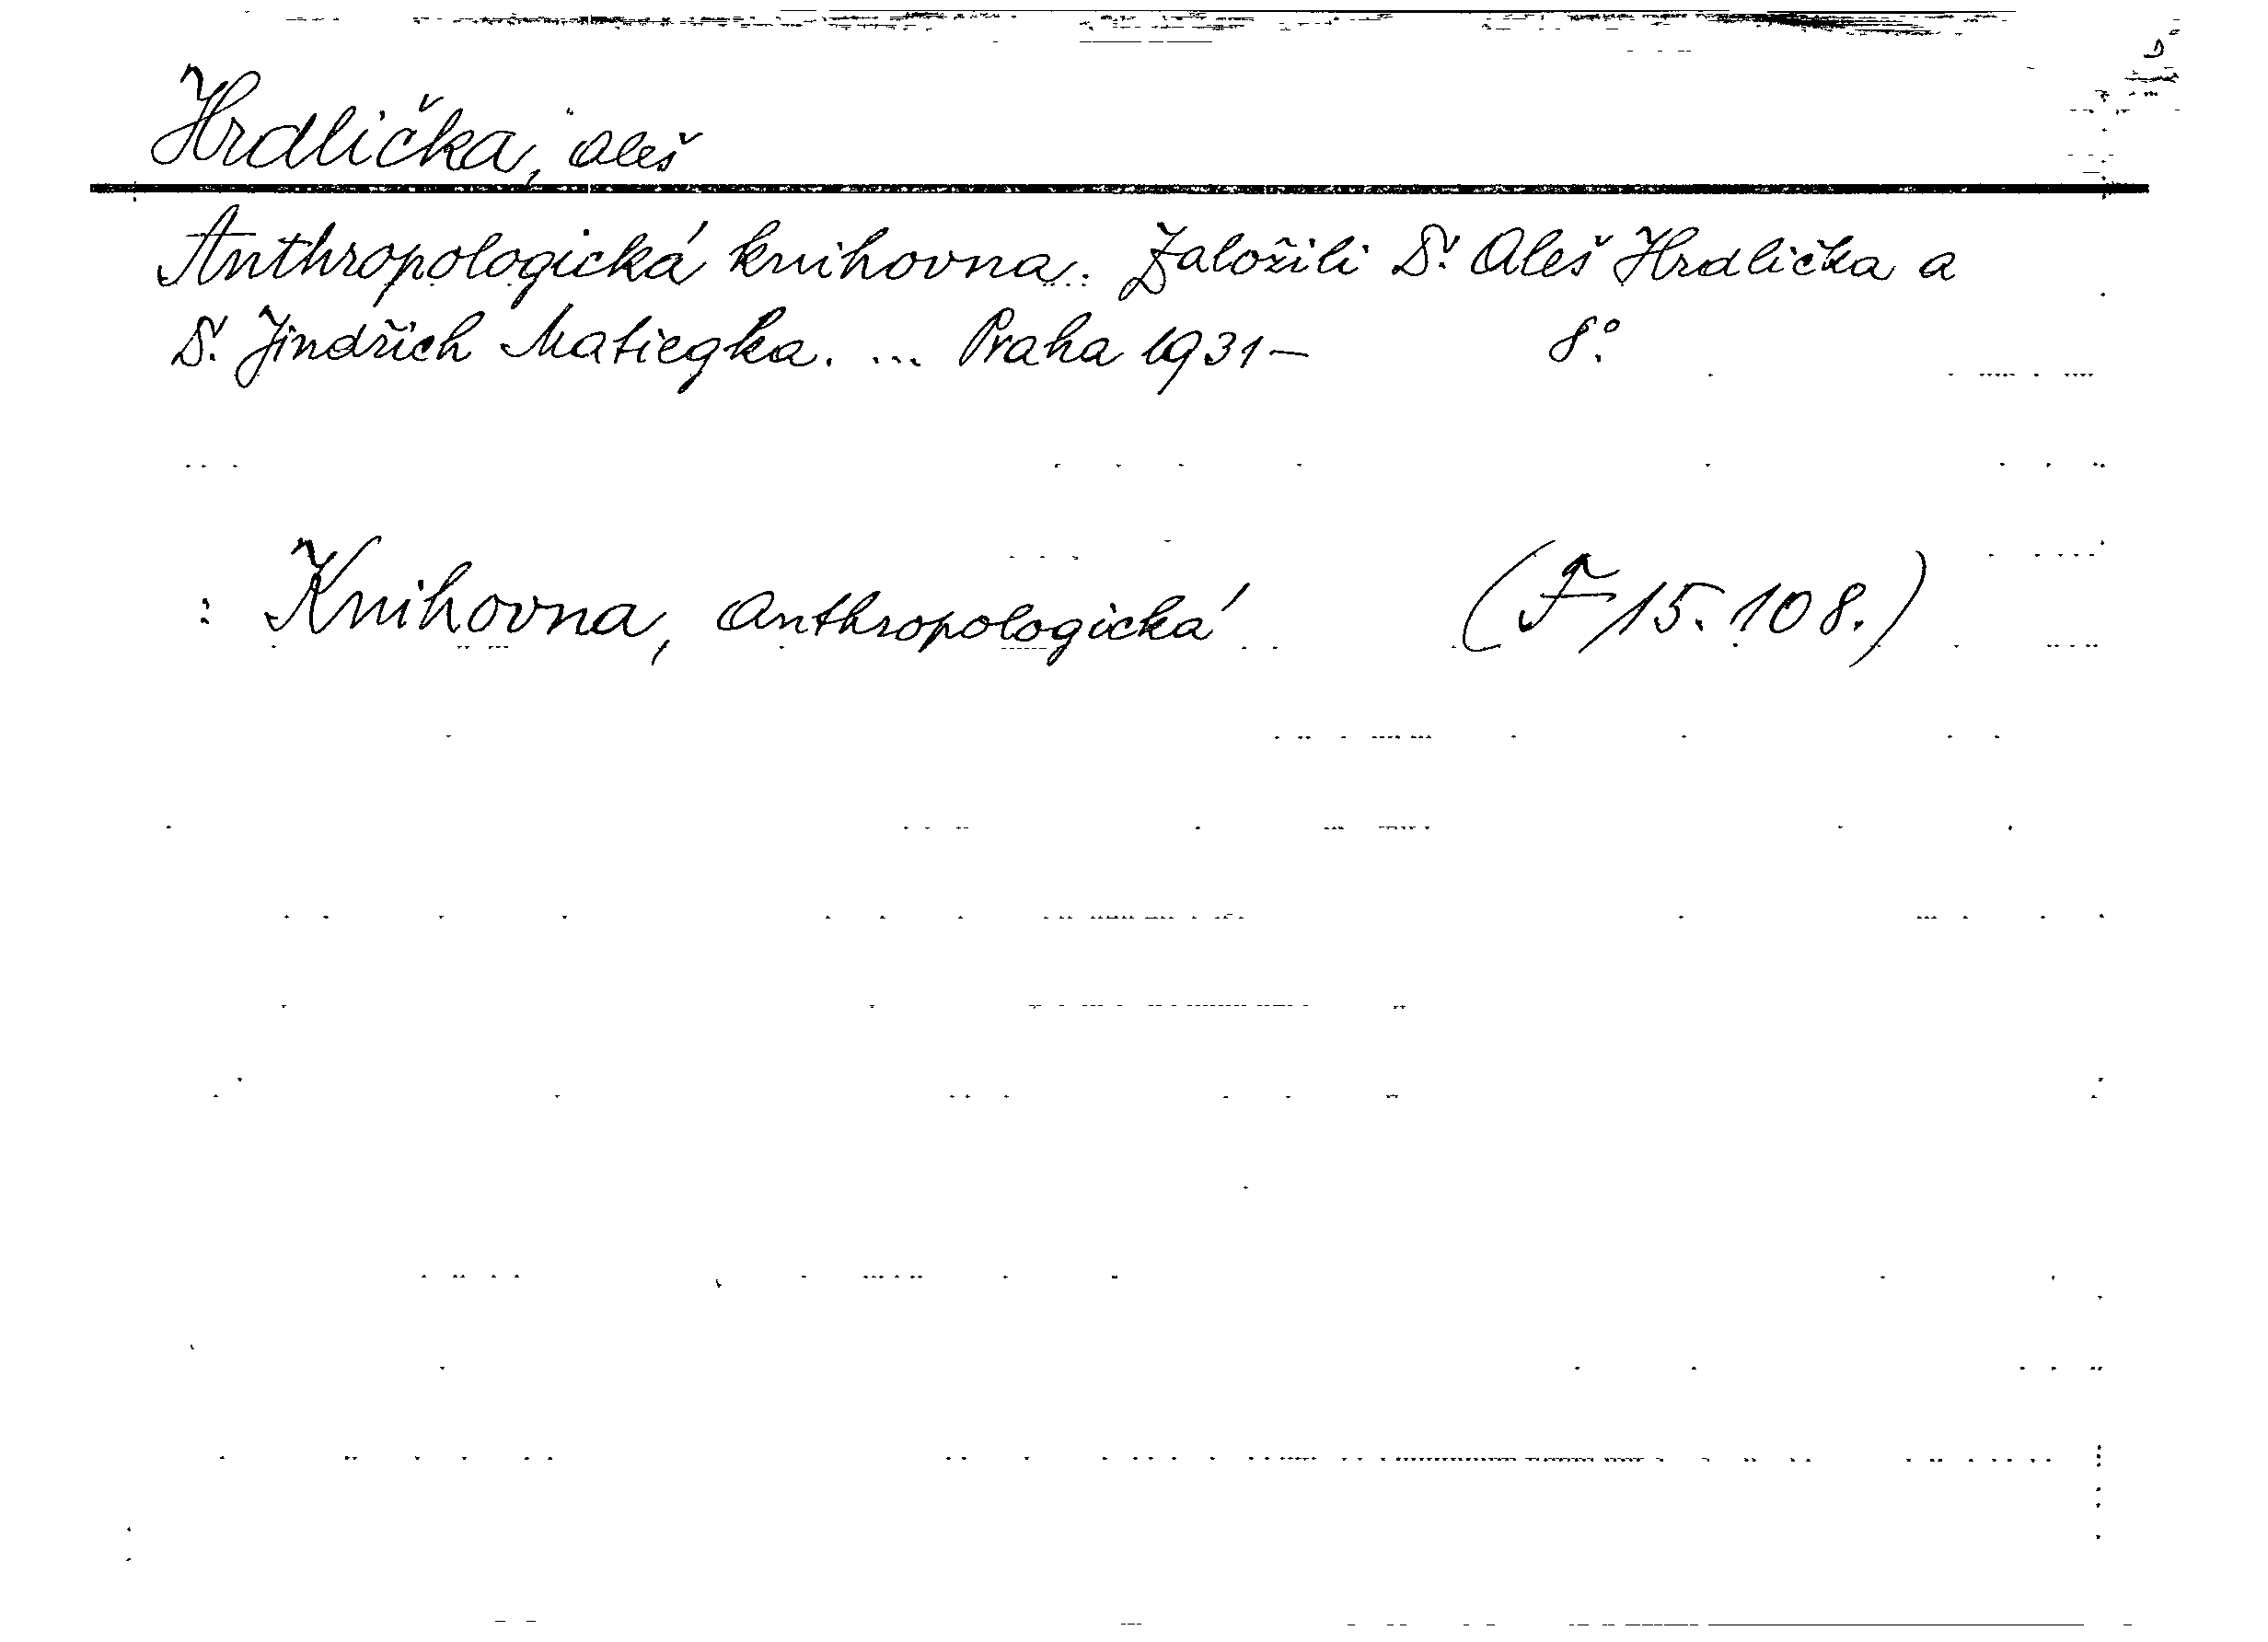 Hrdlička, Aleš
Anthropologická knihovna. Založili Dr. Aleš Hrdlička a
Dr. Jindřich Matiegka. ... Praha 1931– 8°.
: Knihovna, Anthropologická (F 15.108.)